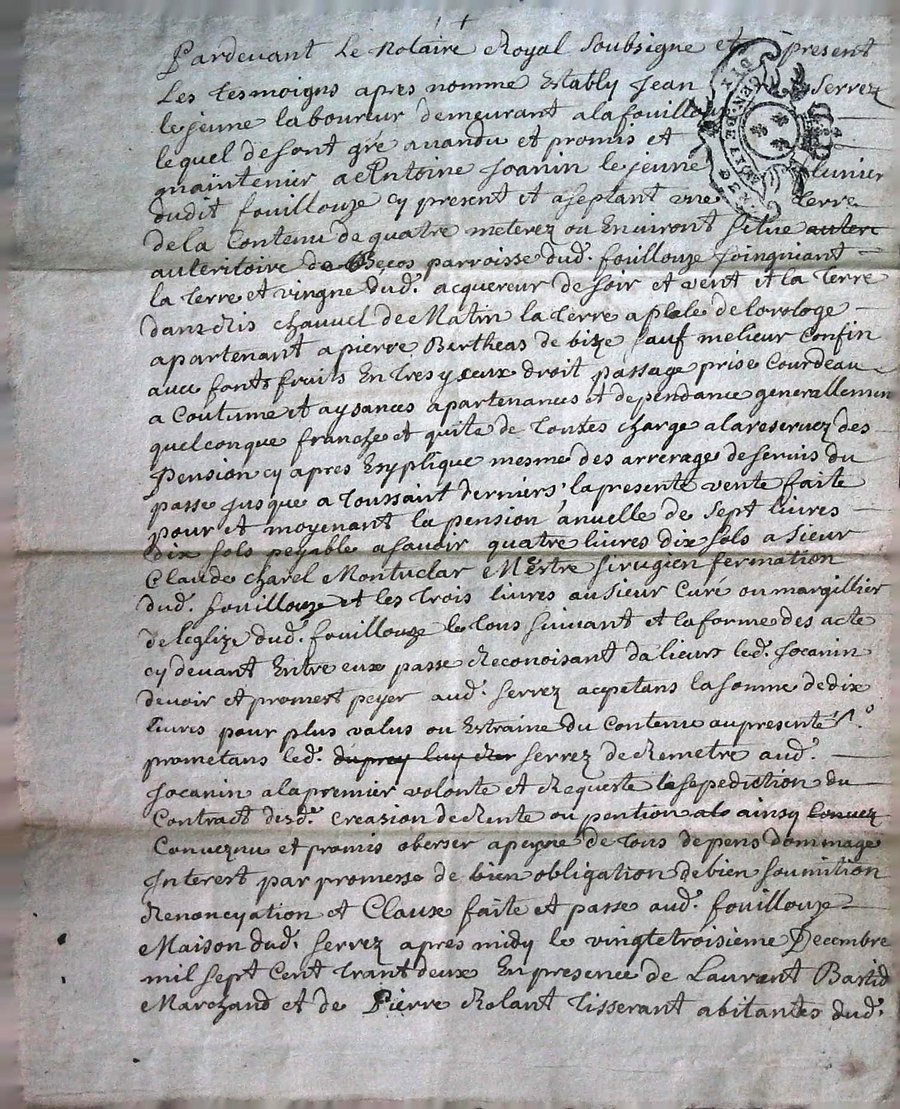 Pardevant Le Notaire Royal soubsigne et present
Les tesmoigns apres nomme Estably Jean Serrez
le jeune laboureur demeurant a la fouillouze
lequel de sont gré a vandu et promis et
maintenier a Entoine Joanin le jeune
dudit fouillouze cy present et aseptant une terre
de la Contenu de quatre meterez ou Environt situe
au teritoire de parroisse dud. fouillouze joingniant
la terre et vingne dud. acquereur de soir et vent et la terre
chauvel de Matin la terre a de lorologe
apartenant a pierre Bertheas de bize sauf melieur Confin
avec fonts fruits Entres yxeux droit passage prise Courdeau
a Coutume et aysances apartenances et dependance generallemen
quelconque franche et quite de toutes charge a la reservez des
Pension cy apres Explique mesme des arrerage de servis du
passe jusque a toussaint derniers la presente vente faite
pour et moyenant la pension anuelle de sept livres
dix sols peyable a savoir quatre livres dix sols a sieur
Claude charel Montuclar Mestre sirugien
dud. fouillouze et les trois livres au sieur Curé ou margillier
de leglize dud. fouillouze le tous suivant et la forme des acte
cy devant Entre eux passe Reconoisant dalieurs led. Jocanin
devoir et proment peyer aud. Serrez acepetans la somme de dix
livres pour plus valus ou Estraine du Contenu au presente
prometans led. Serrez de Remetre aud.
Jocanin a la premier volonte et Requeste lesepediction du
Contract desd. Creasion de Rente ou pention ainsy
Conveznu et promis oberser a peyne de tous depens dommage
Interest par promesse de bien obligation de bien soumition
Renoncyation et Claux faite et passe aud. fouillouze
Maison dud. Serrez apres midy le vingtetroisieme Decembre
mil sept Cent trant deux En presence de Laurent
Marchand et de Pierre Rolant tisserant abitantes dud.